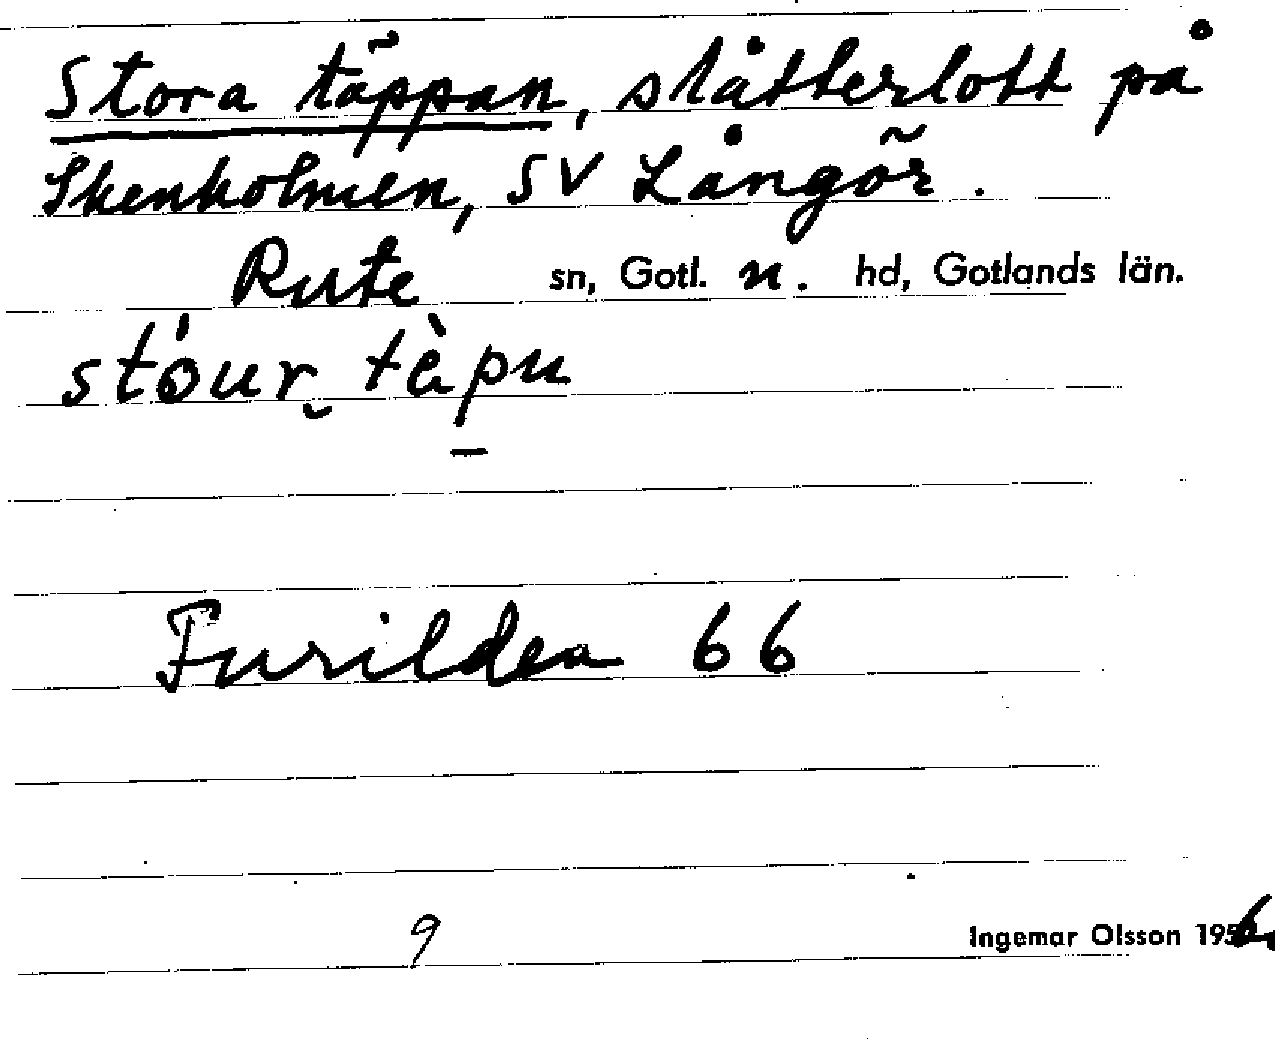 Stora täppan, slåtterlott på
Skenholmen, SV Långör.
Rute sn, Gotl. n. hd, Gotlands län.
stóur̮ tàpu
Furilden 66
9
Ingemar Olsson 1956.